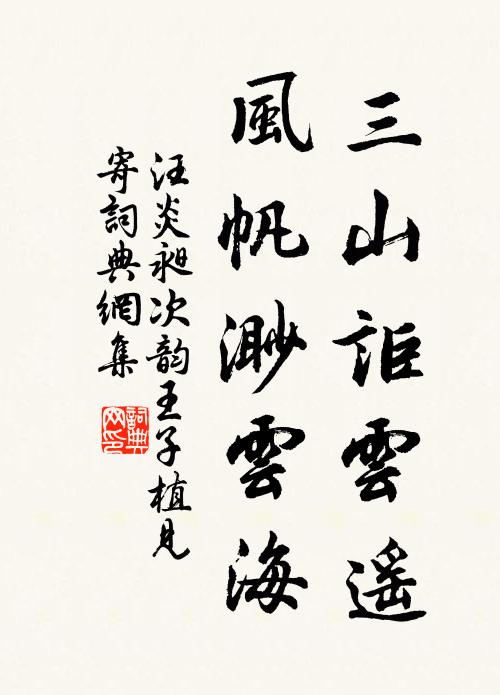 三山詎雲遥
風帆渺雲海
汪炎昶次韵王子植見
寄詞典網集
詞典
网印